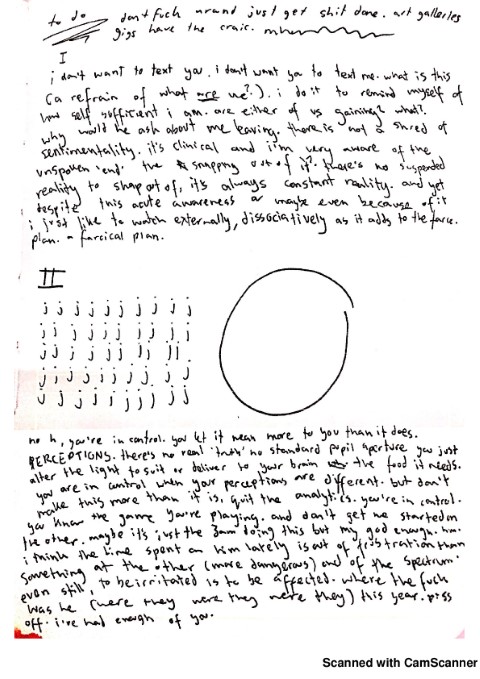 to do
don't fuck around just get shit done. art galleries
gigs have the craic.
I
i don't want to text you. i don't want you to text me. what is this
(a refrain of what are we?). i do it to remind myself of
how self sufficient i am. are either of us gaining? what?
why would he ask about me leaving. there is not a shred of
sentimentality. it's clinical and i'm very aware of the
unspoken 'end' the snapping out of it? there's no suspended
reality to snap out of, it's always constant reality. and yet
despite this acute awareness or maybe even because of it
i just like to watch externally, dissociatively as it adds to the farce.
plan. a farcical plan.
II
j j j j j j j j j
j j j j j j j j
j j j j j j j j j
j j j j j j j j j
j j j j j j j j j
no h, you're in control. you let it mean more to you than it does.
PERCEPTIONS. there's no real 'truth' no standard pupil aperture you just
alter the light to suit or deliver to your brain the food it needs.
you are in control when your perceptions are different. but don't
make this more than it is. quit the analytics. you're in control.
you know the game you're playing. and don't get me started on
the other. maybe it's just the 3am doing this but my god enough. hm.
i think the time spent on him lately is out of frustration than
something at the other (more dangerous) end of the spectrum.
even still, to be irritated is to be affected. where the fuck
was he (were they were they were they) this year. piss
off. i've had enough of you.
Scanned with CamScanner